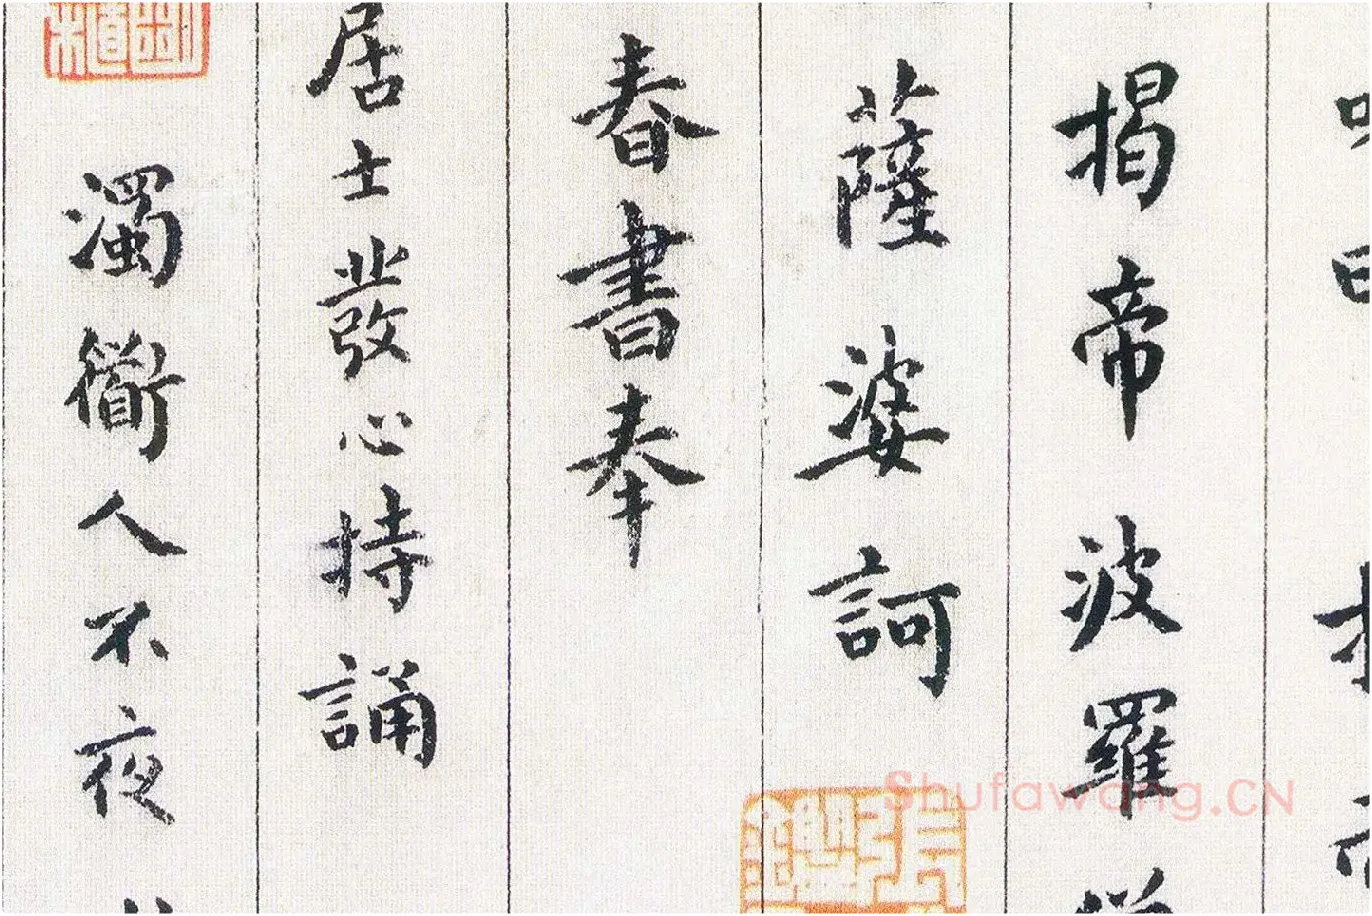 揭帝波羅
薩婆訶
春書奉
居士發心持誦
濁衢人不夜
Shufawang.CN